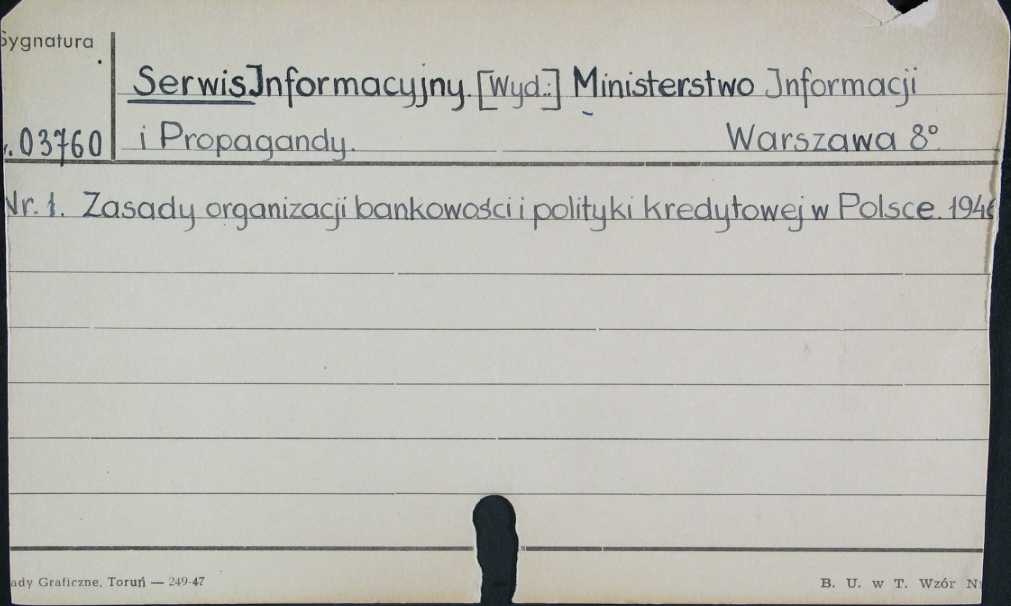 Sygnatura
Serwis Informacyjny. [Wyd.:] Ministerstwo Informacji
03760 i Propagandy. Warszawa 8°.
Nr. 1. Zasady organizacji bankowości i polityki kredytowej w Polsce. 1946
Graficzne, Toruń — 249-47 B. U. w T. Wzór